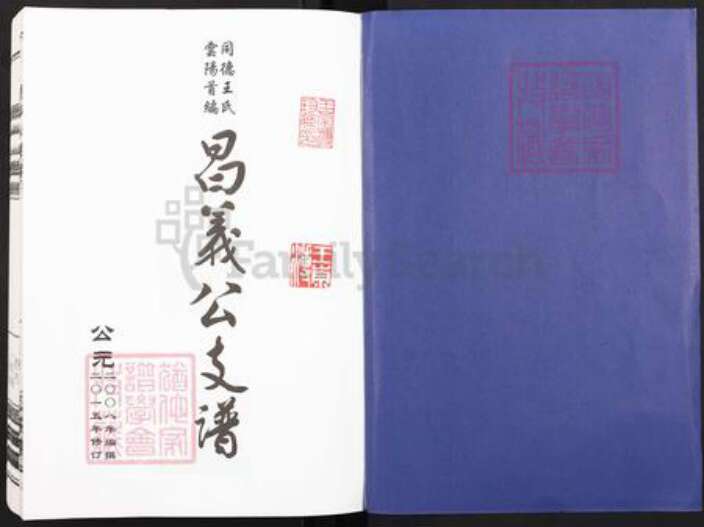 同德王氏
雲陽首編
昌義公支谱
公元二〇〇八年编撰
二〇一五年修订
FamilySearch